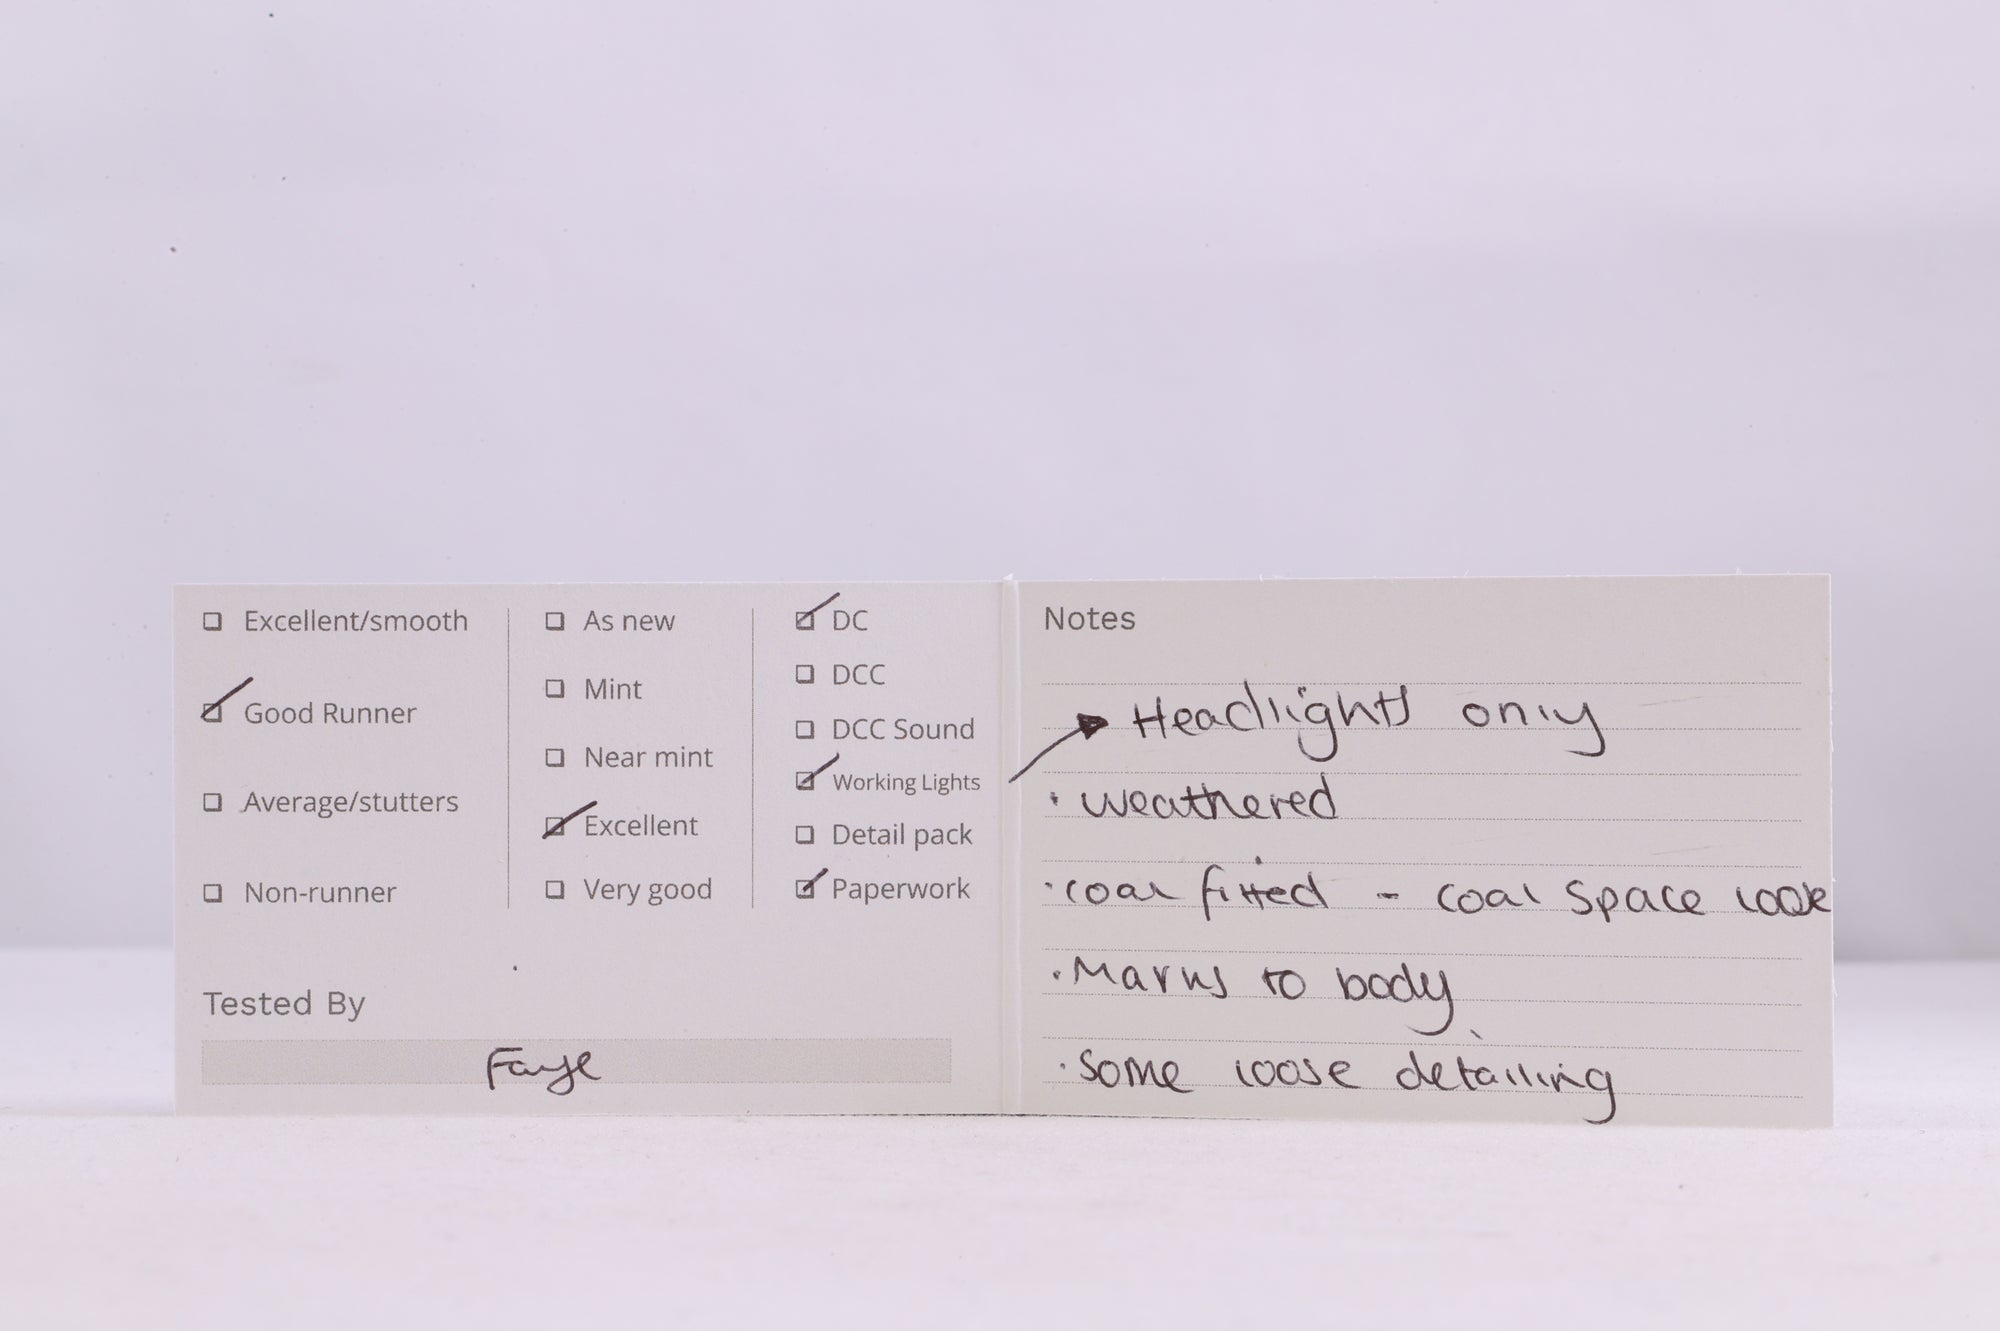 Excellent/smooth
Good Runner
Average/stutters
Non-runner
As new
Mint
Near mint
Excellent
Very good
DC
DCC
DCC Sound
Working Lights
Detail pack
Paperwork
Tested By
Faye
Notes
Headlights only
· weathered
· coal fitted - coal space loose
· Marks to body
· some loose detailing